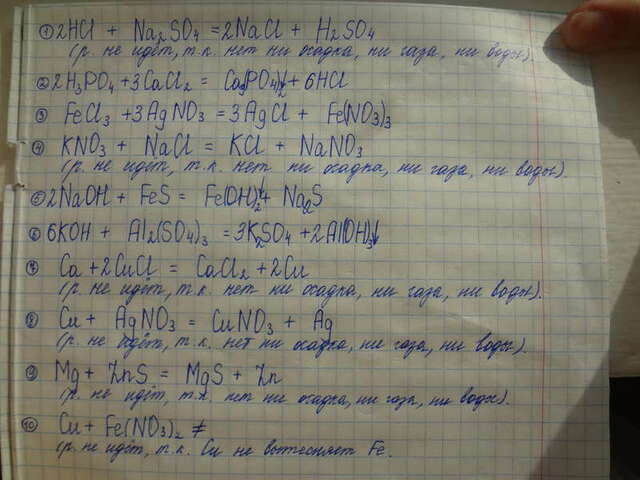 ① 2HCl + Na₂SO₄ = 2NaCl + H₂SO₄
(р. не идёт, т.к. нет ни осадка, ни газа, ни воды).
② 2H₃PO₄ + 3CaCl₂ = Ca₃(PO₄)₂↓ + 6HCl
③ FeCl₃ + 3AgNO₃ = 3AgCl + Fe(NO₃)₃
④ KNO₃ + NaCl = KCl + NaNO₃
(р. не идёт, т.к. нет ни осадка, ни газа, ни воды).
⑤ 2NaOH + FeS = Fe(OH)₂↓ + Na₂S
⑥ 6KOH + Al₂(SO₄)₃ = 3K₂SO₄ + 2Al(OH)₃↓
⑦ Ca + 2CuCl = CaCl₂ + 2Cu
(р. не идёт, т.к. нет ни осадка, ни газа, ни воды).
⑧ Cu + AgNO₃ = CuNO₃ + Ag
(р. не идёт, т.к. нет ни осадка, ни газа, ни воды).
⑨ Mg + ZnS = MgS + Zn
(р. не идёт, т.к. нет ни осадка, ни газа, ни воды).
⑩ Cu + Fe(NO₃)₂ ≠
(р. не идёт, т.к. Cu не вытесняет Fe.